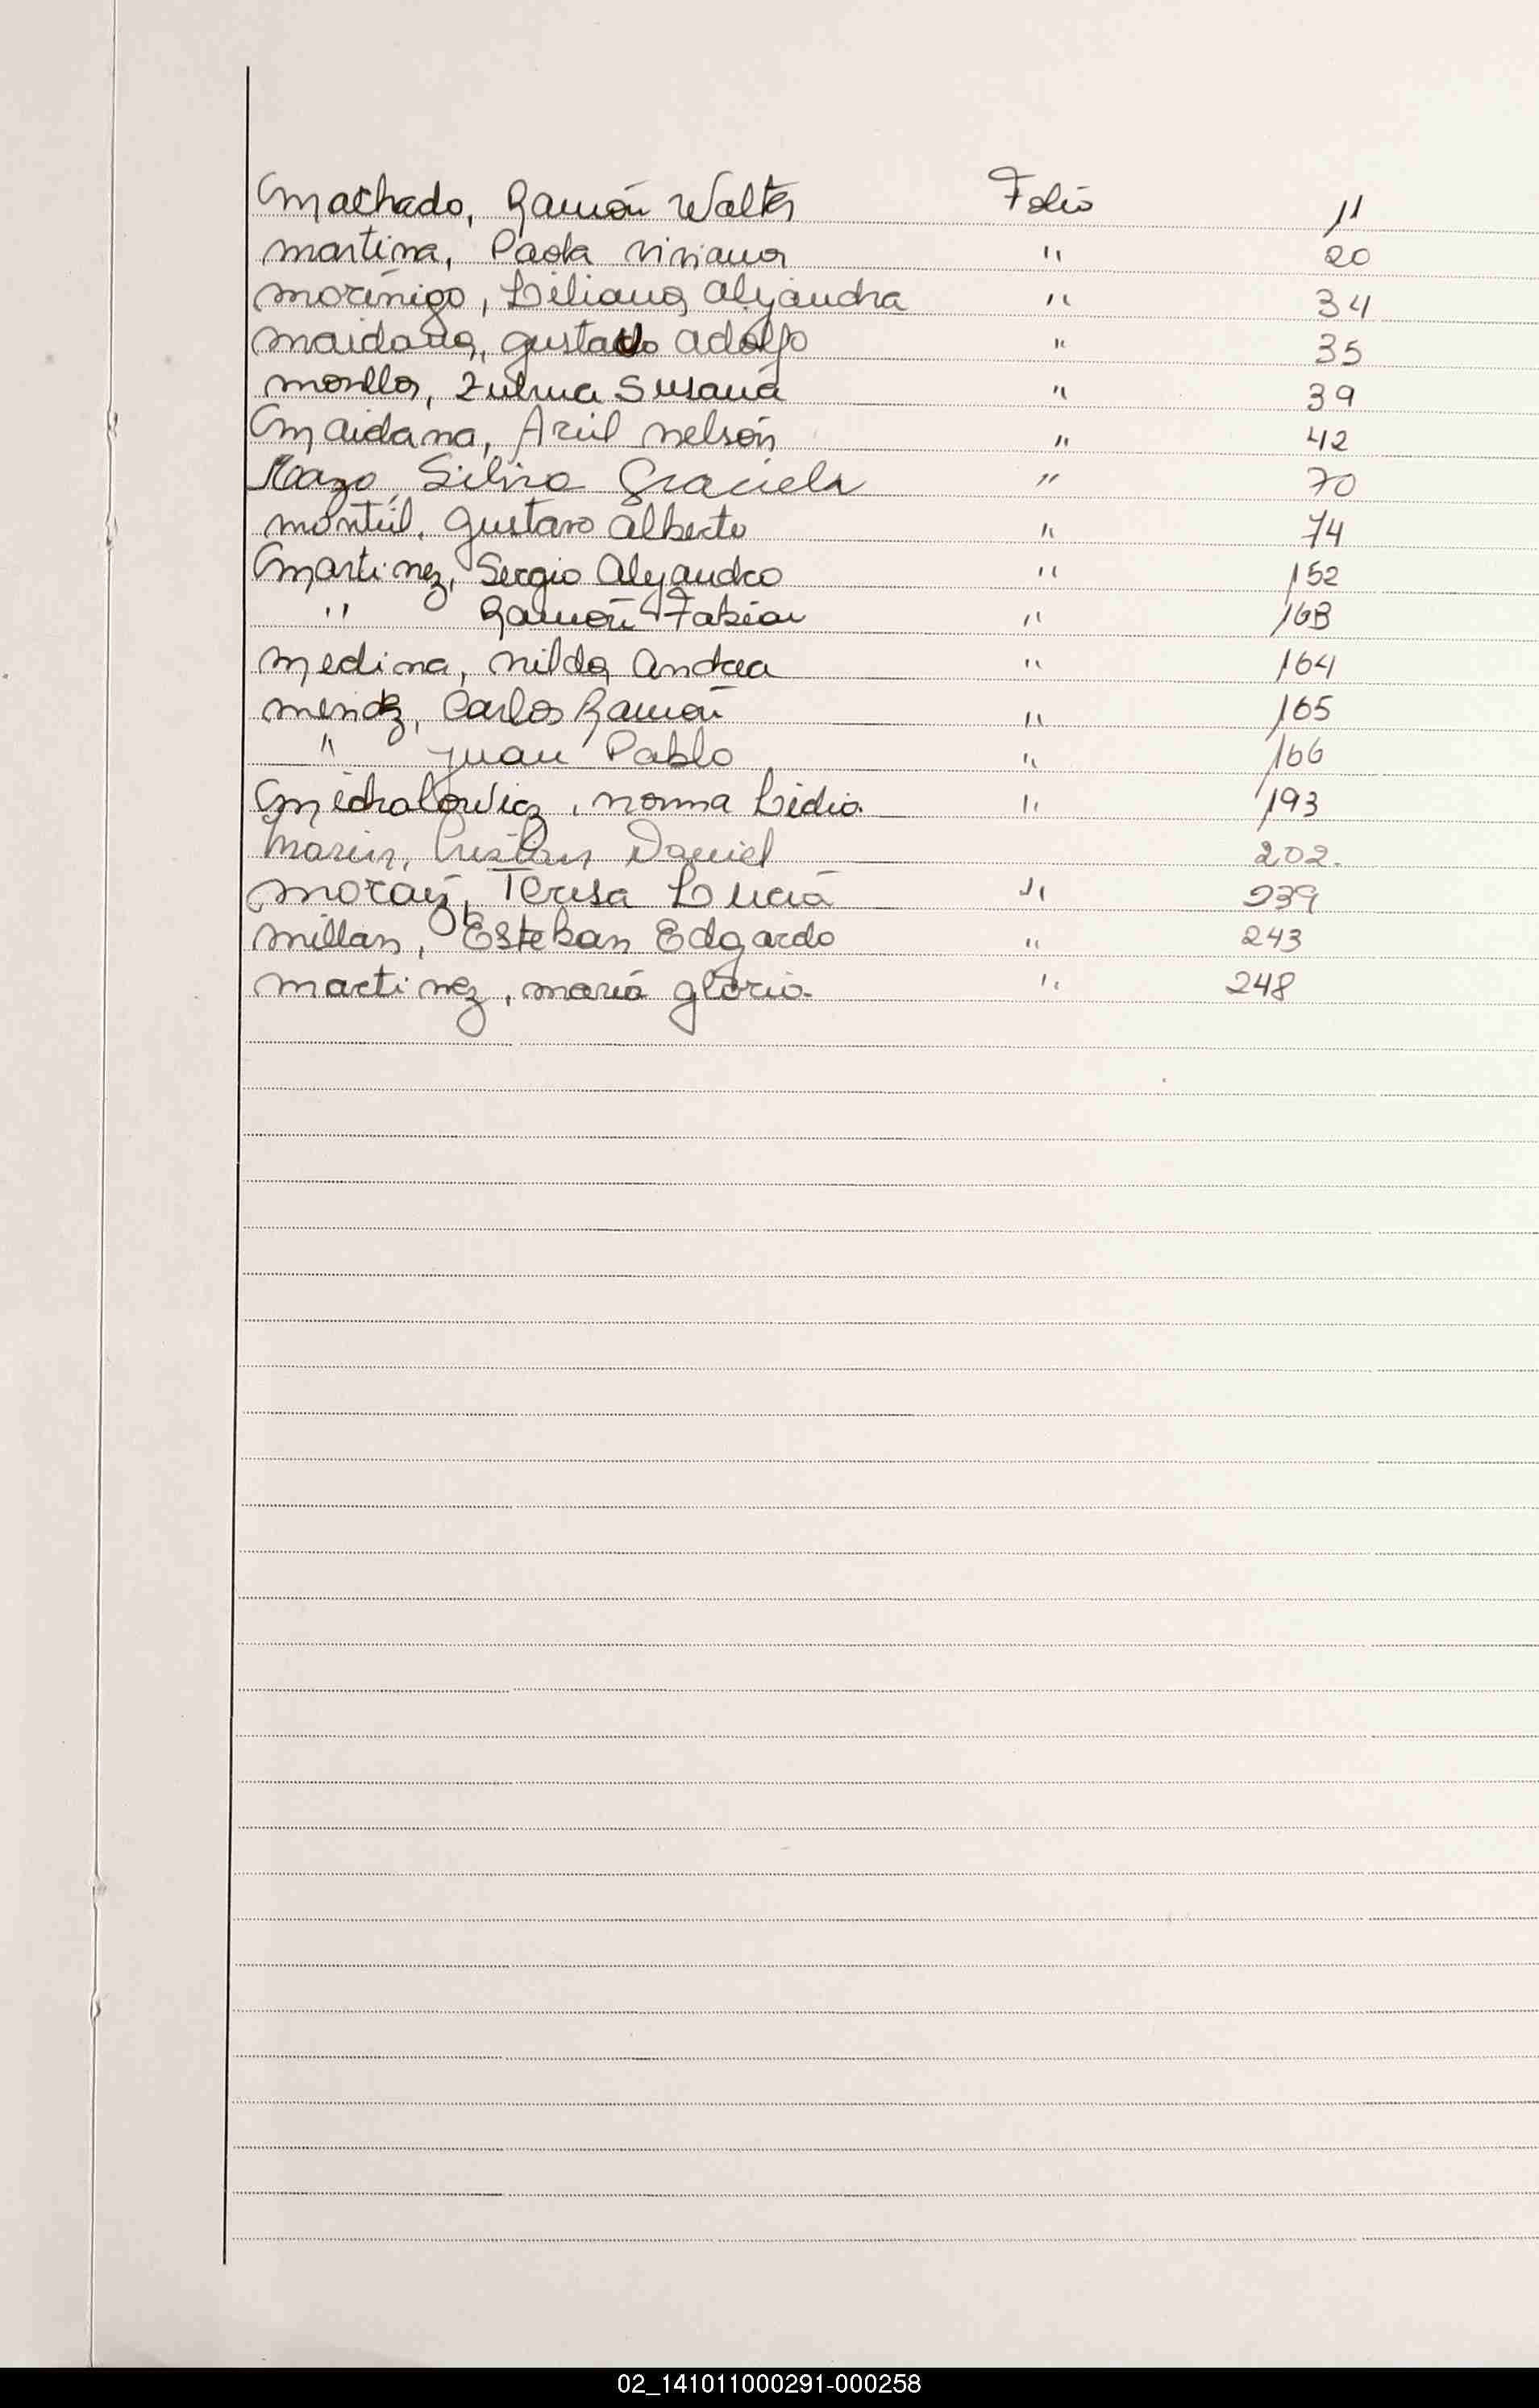 Machado, Ramón Walter Folio 11
Martina, Paola Viviana " 20
Morínigo, Liliana Alejandra " 34
Maidana, Gustavo Adolfo " 35
Zulma Susana " 39
Maidana, Ariel Nelson " 42
Mazo, Silvia Graciela " 70
Montiel, Gustavo Alberto " 74
Martinez, Sergio Alejandro " 152
" Ramón Fabian "
Medina, Nilda Andrea " 164
Mendez, Carlos Ramón " 165
" Juan Pablo " 166
Michalowicz, Norma Lidia. " 193
Marin, Cristian Daniel 202.
Teresa Lucia " 239
Millan, Esteban Edgardo " 243
Martinez, María Gloria. " 248
02_141011000291-000258